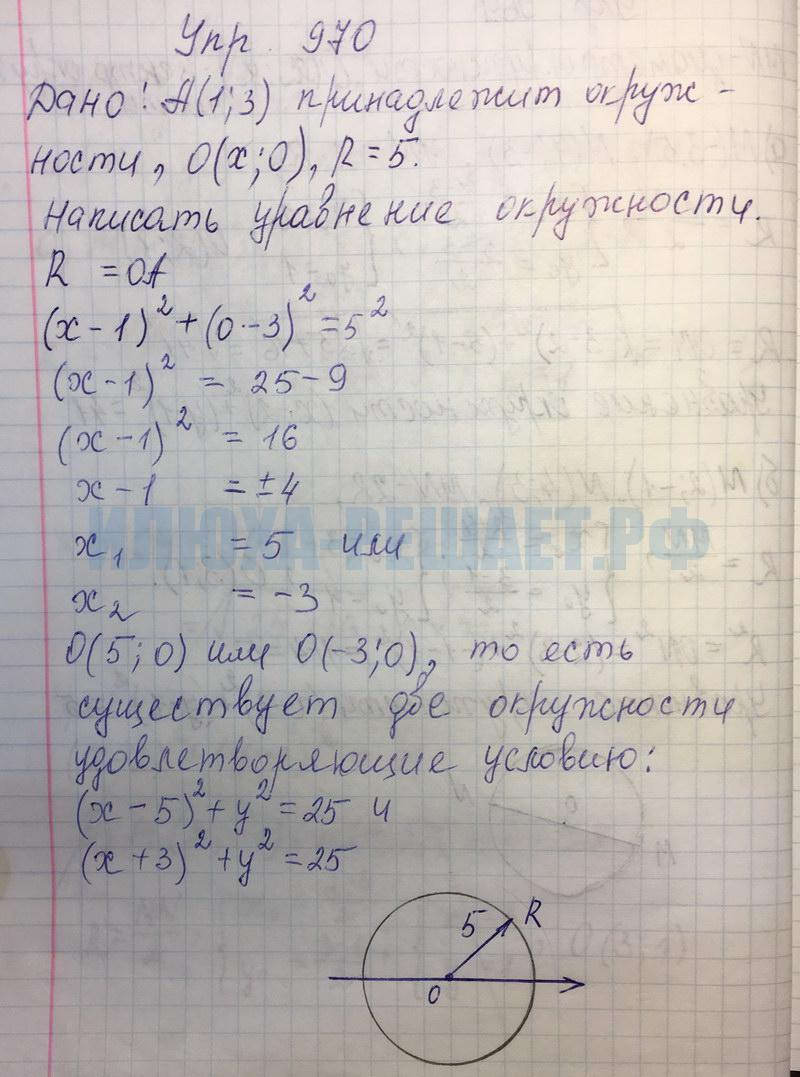 Упр. 970
Дано: A(1;3) принадлежит окруж-
ности, O(x;0), R=5.
Написать уравнение окружности.
R = OA
(x-1)² + (0-3)² = 5²
(x-1)² = 25-9
(x-1)² = 16
x-1 = ±4
ИЛЮХА-РЕШАЕТ.РФ
x₁ = 5 или
x₂ = -3
O(5;0) или O(-3;0), то есть
существует две окружности
удовлетворяющие условию:
(x-5)² + y² = 25 и
(x+3)² + y² = 25
5 R
O